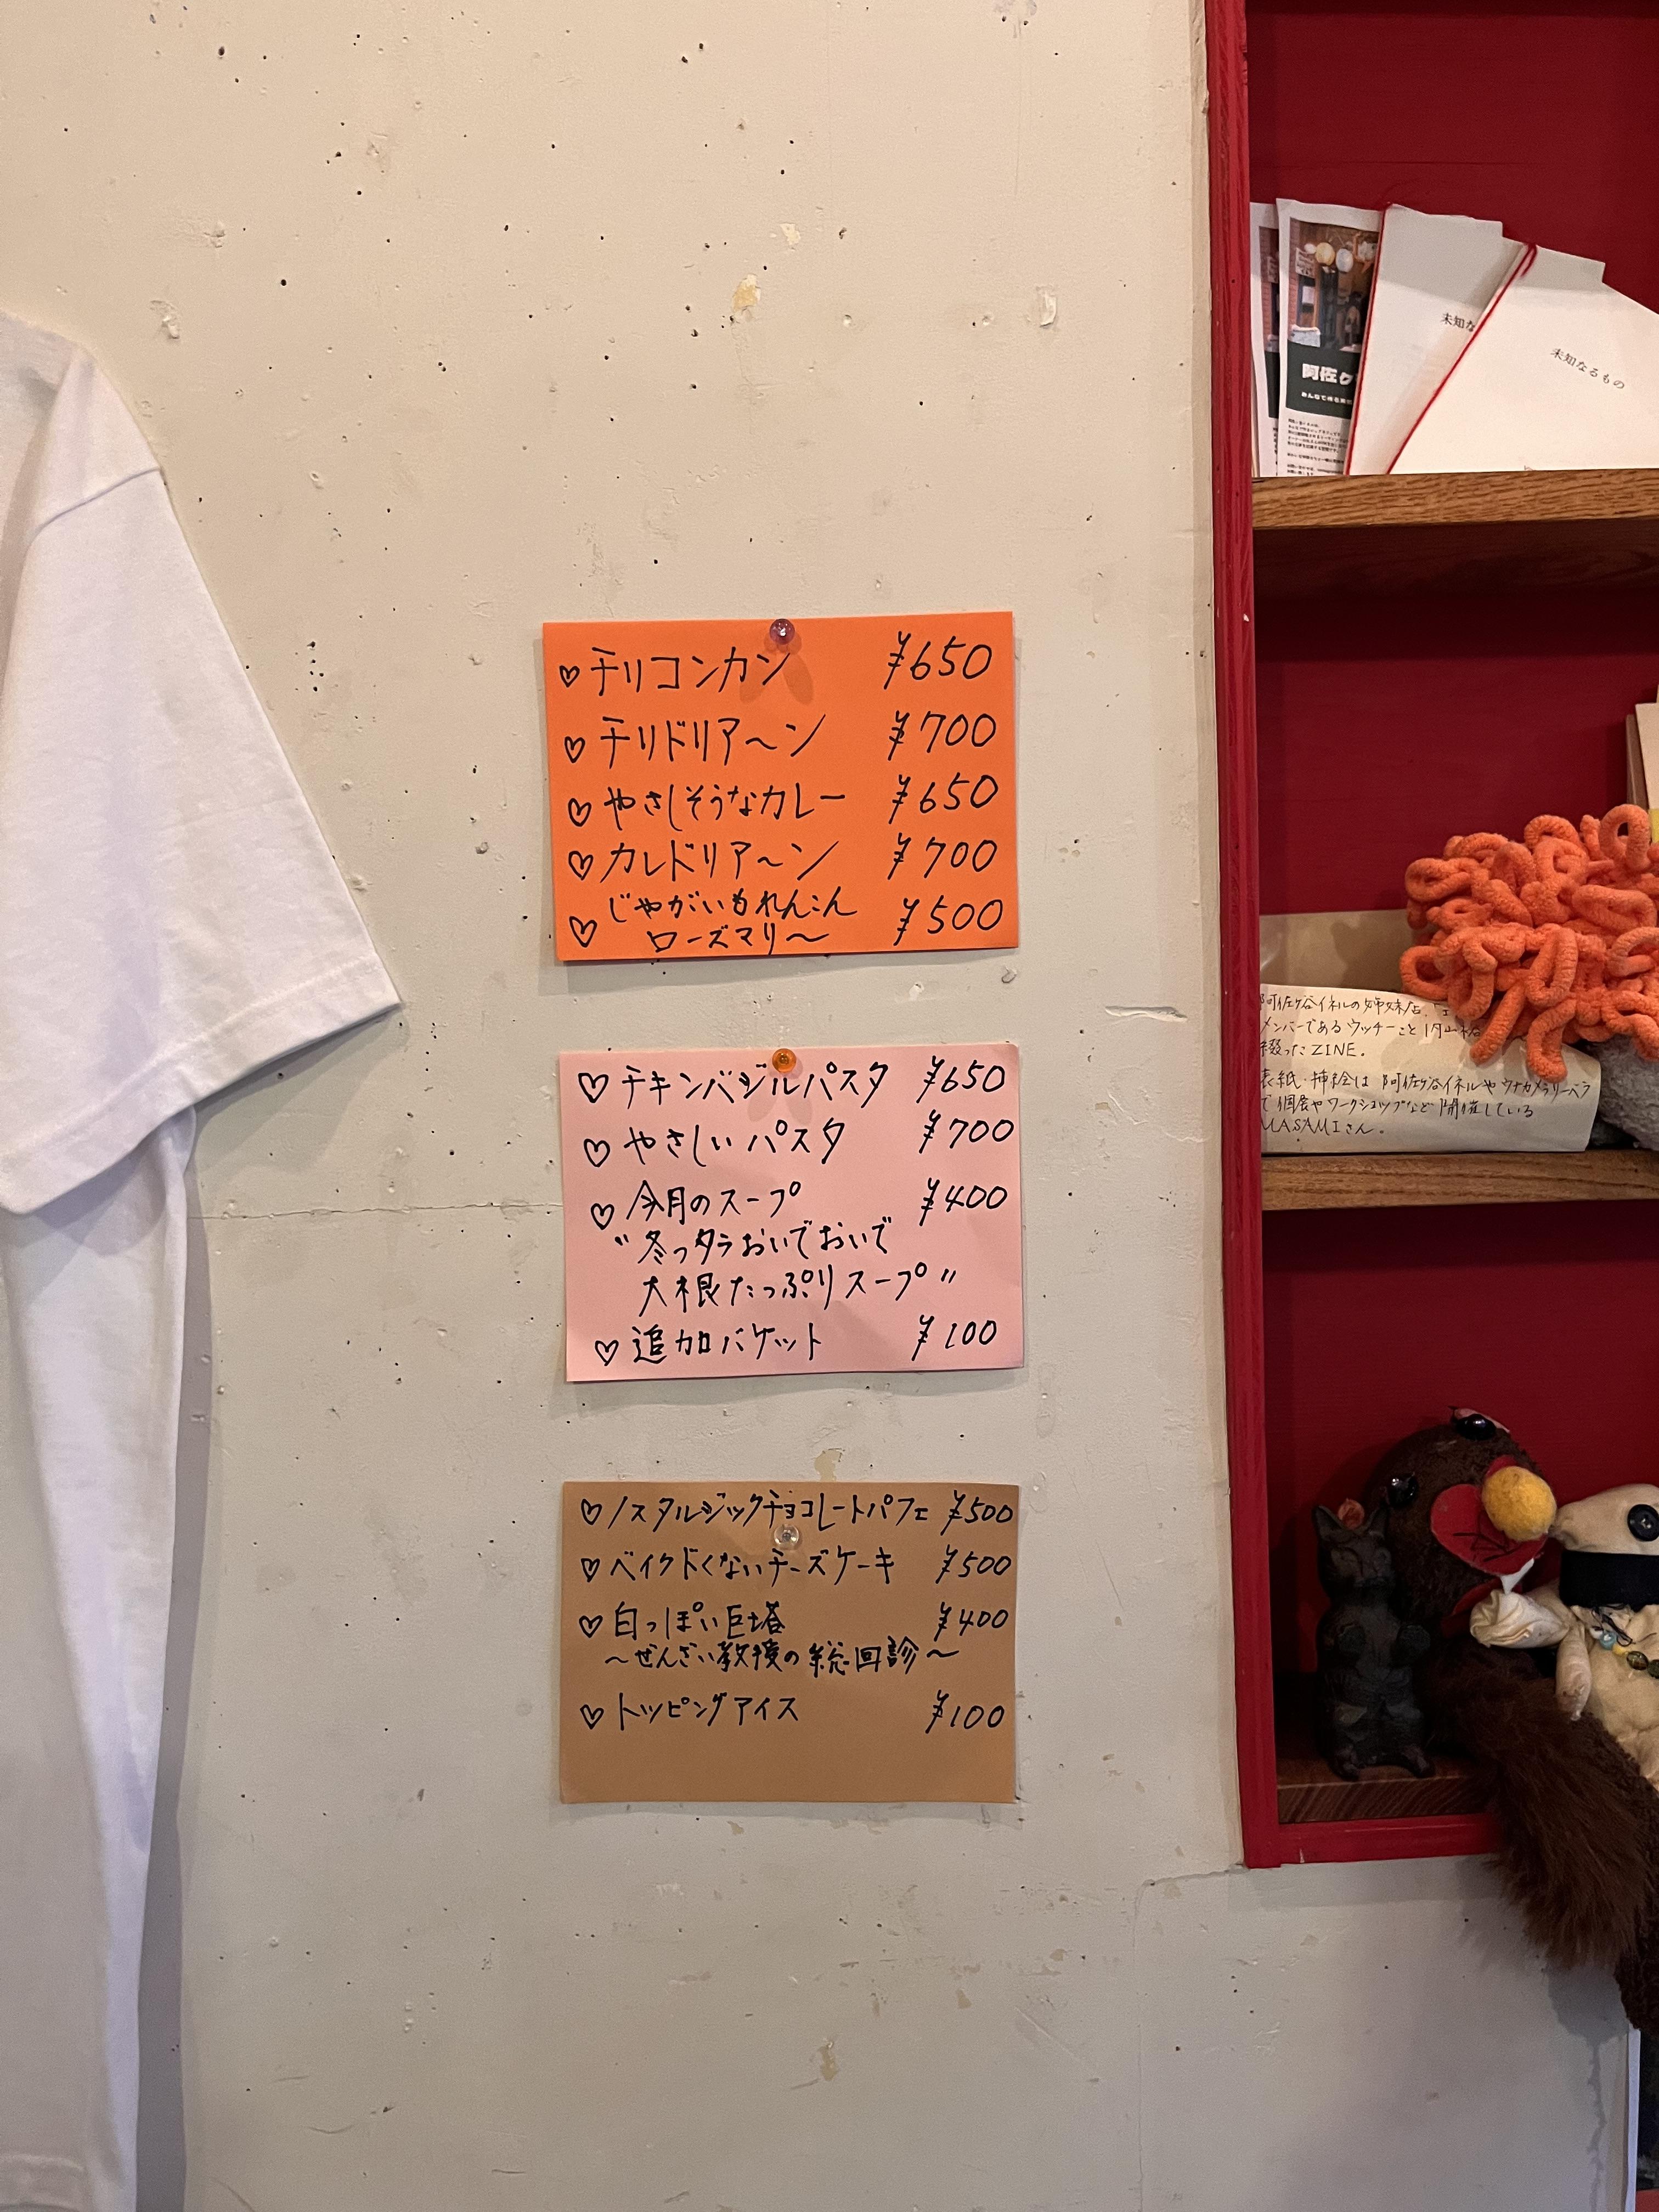 ♡チリコンカン ¥650
♡チリドリア〜ン ¥700
♡やさしそうなカレー ¥650
♡カレドリア〜ン ¥700
♡じゃがいもれんこん
ローズマリ〜 ¥500
♡チキンバジルパスタ ¥650
♡やさしいパスタ ¥700
♡今月のスープ ¥400
"冬っタラおいでおいで
大根たっぷりスープ"
♡追加バケット ¥100
♡ノスタルジックチョコレートパフェ ¥500
♡ベイクドくないチーズケーキ ¥500
♡白っぽい巨塔 ¥400
〜ぜんざい教授の総回診〜
♡トッピングアイス ¥100
阿佐ケ
みんなで作る
未知な
未知なるもの
阿佐ヶ谷イネルの姉妹店、
メンバーであるウッチーこと内山
綴ったZINE。
表紙・挿絵は阿佐ヶ谷イネルやウナカメラリーベラ
で個展やワークショップなど開催している
MASAMIさん。